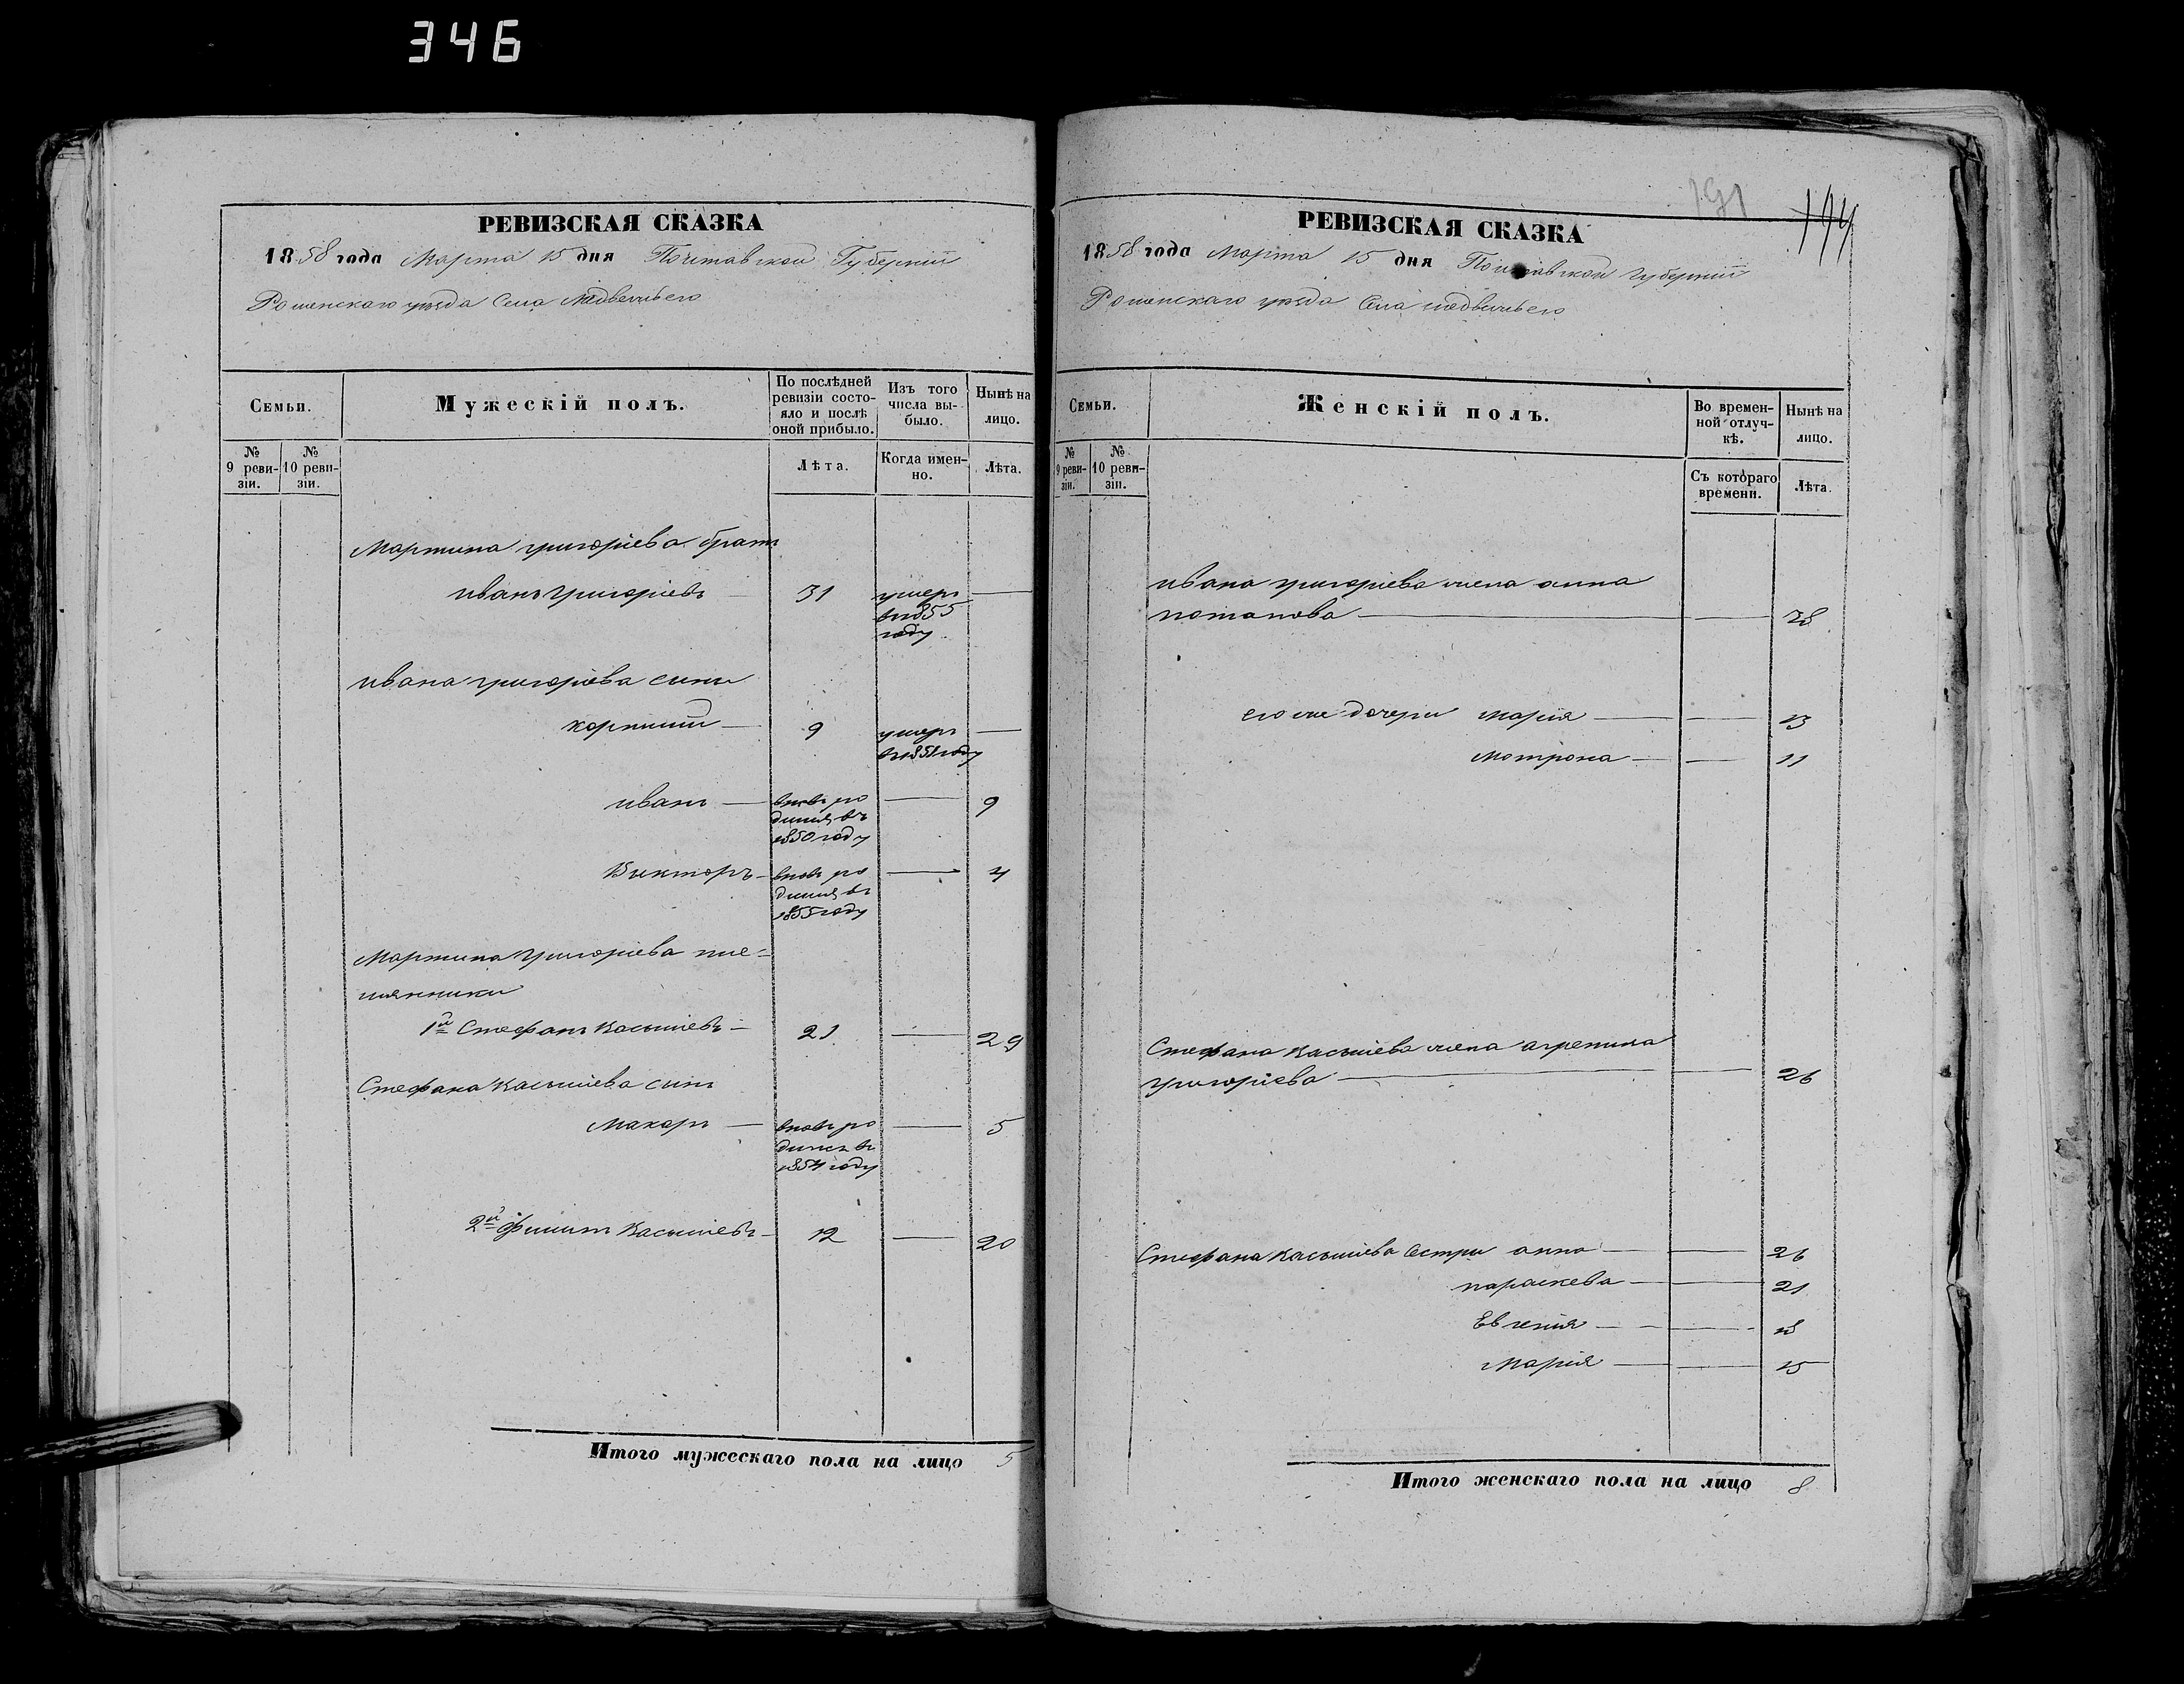 346
РЕВИЗСКАЯ СКАЗКА
1858 года Марта 15 дня Полтавской Губернiи
Роменскаго уѣзда Села Медвежьего
Семьи.
Мужескiй полъ.
По послѣдней ревизiи состо-
яло и послѣ
оной прибыло.
Изъ того
числа вы-
было.
Нынѣ на
лицо.
№
9 реви-
зiи.
№
10 реви-
зiи.
Лѣта.
Когда имен-
но.
Лѣта.
Мартина григорiева братъ
иванъ григорiевъ — 31 умеръ —
въ 1855
году
ивана григорiева сыни
корнилiй — 9 умеръ —
въ 1851 году
иванъ — вновь ро — 9
дился въ
1850 году
Викторъ — вновь ро — 4
дился въ
1855 году
Мартина григорiева пле-
мянники
1й Стефанъ Касьянiевъ — 21 — 29
Стефана Касьянiева сынъ
Макаръ — вновь ро — 5
дился въ
1854 году
2й Филипъ Касьянiевъ — 12 — 20
Итого мужескаго пола на лицо 5
191
194
РЕВИЗСКАЯ СКАЗКА
1858 года Марта 15 дня Полтавской губернiи
Роменскаго уѣзда Села медвежьего
Семьи.
Женскiй полъ.
Во времен-
ной отлуч-
кѣ.
Нынѣ на
лицо.
№
9 реви-
зiи.
№
10 реви-
зiи.
Съ котораго
времени.
Лѣта.
ивана григорiева жена анна
потапова — — 38
его же дочери марiя — — 13
мотрона — — 11
Стефана Касьянiева жена агрепина
григорiева — — 26
Стефана Касьянiева сестри анна — — 26
параскева — — 21
Евгенiя — — 18
Марiя — — 15
Итого женскаго пола на лицо 8